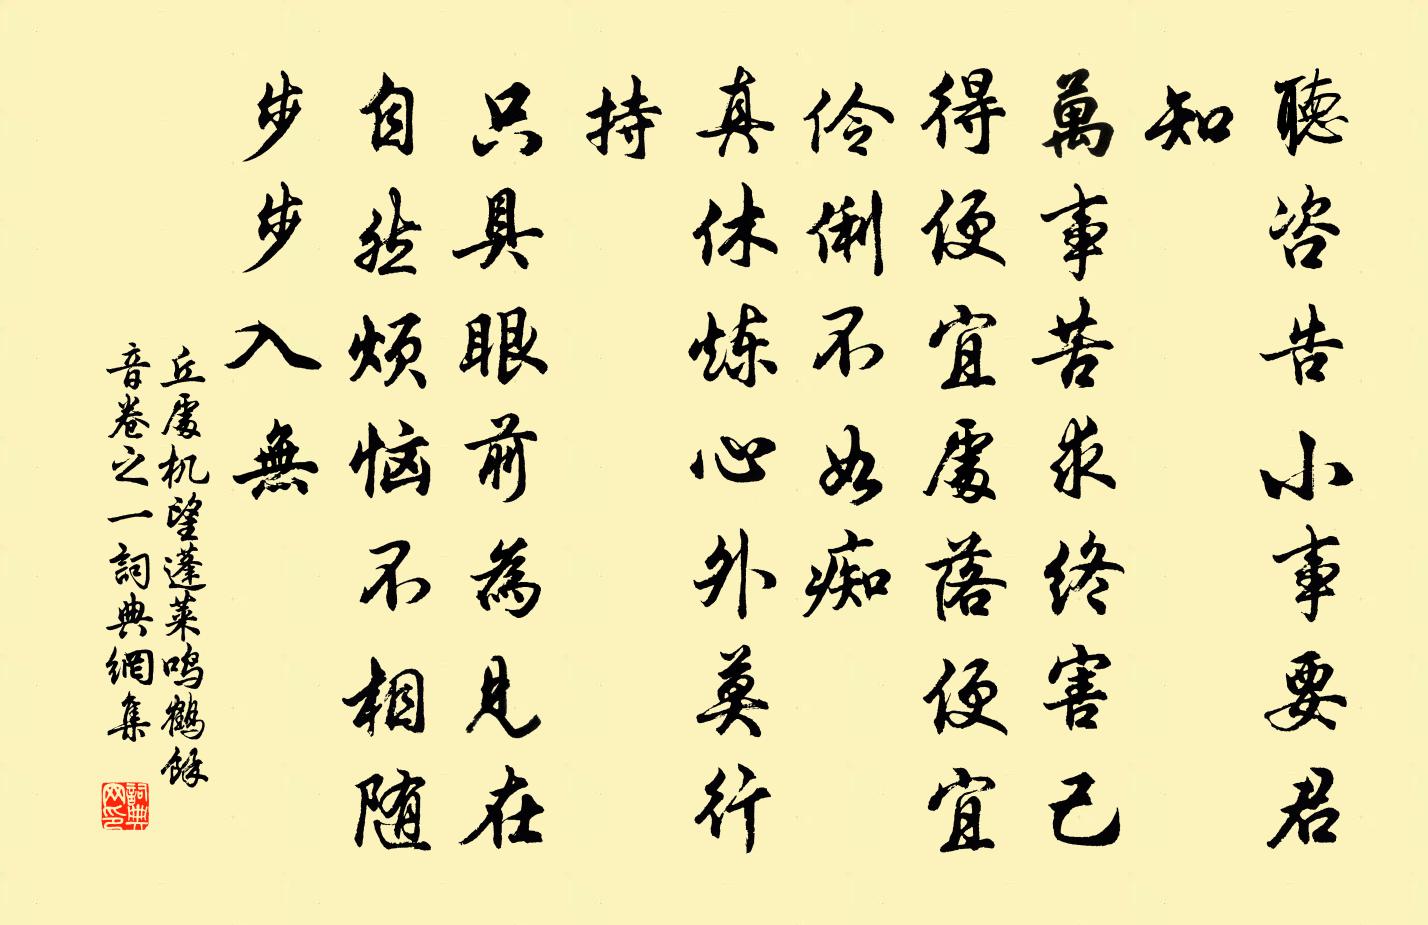 聽咨告小事要君
知
萬事苦求終害己
得便宜處落便宜
伶俐不如痴
真休炼心外莫行
持
只具眼前為見在
自然烦恼不相随
步步入無
丘處机望蓬莱鸣鶴餘
音卷之一詞典網集
詞典
网印